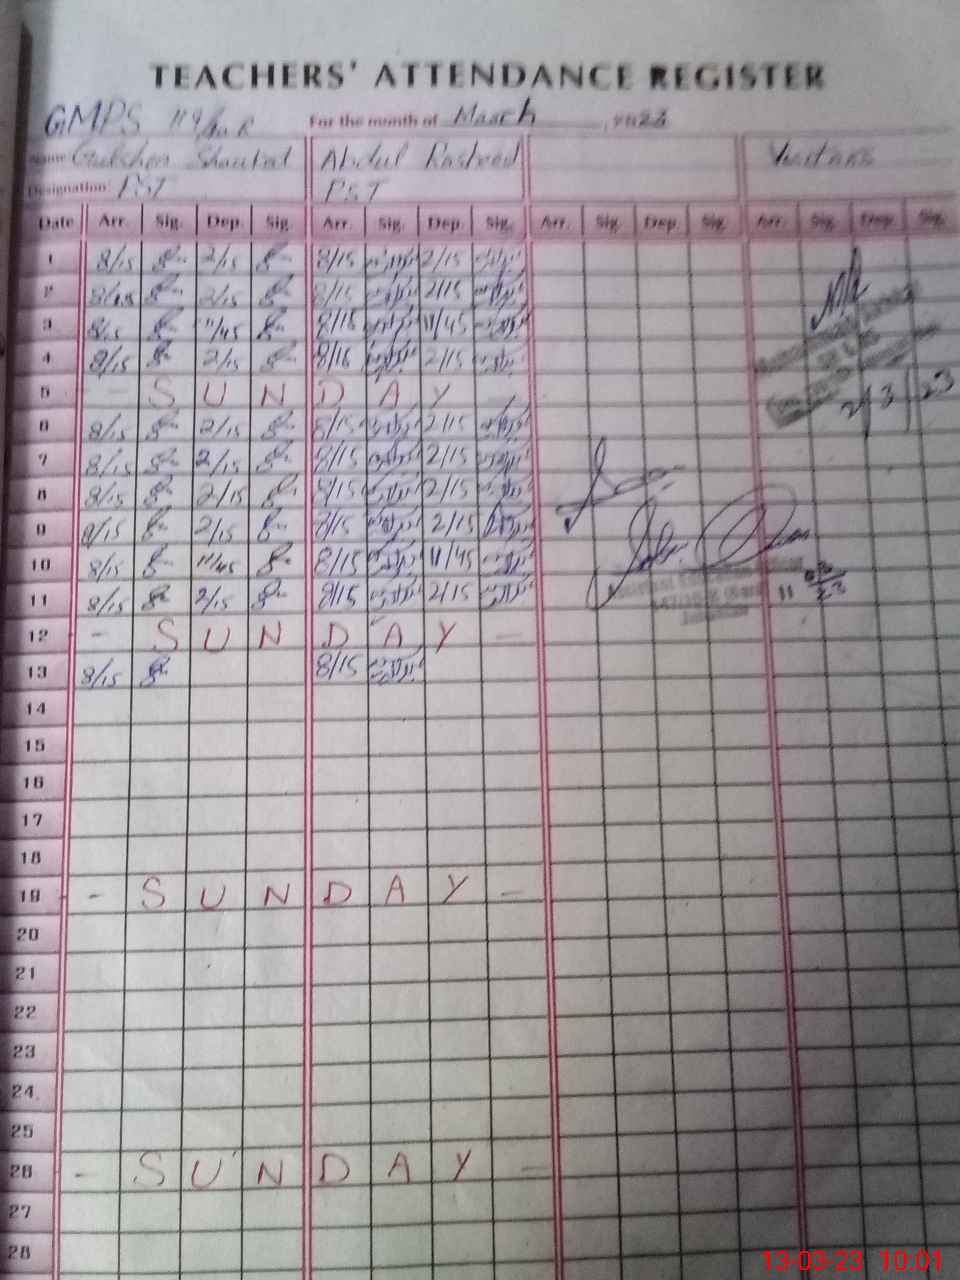 TEACHERS' ATTENDANCE REGISTER
GMPS For the month of March, 2023
Name Gulshan Shaukat Abdul Rasheed Visitors
Designation: PST PST
Date Arr. Sig. Dep. Sig. Arr. Sig. Dep. Sig. Arr. Sig. Dep. Sig. Arr. Sig. Dep. Sig.
1 8/15 2/15 8/15 2/15
2 8/15 2/15 8/15 2/15
3 8/15 11/45 8/15 11/45
4 8/15 2/15 8/15 2/15
5 - S U N D A Y -
2/3/23
6 8/15 2/15 8/15 2/15
7 8/15 2/15 8/15 2/15
8 8/15 2/15 8/15 2/15
9 8/15 2/15 8/15 2/15
10 8/15 11/45 8/15 11/45
11 8/15 2/15 8/15 2/15
12 - S U N D A Y -
13 8/15 8/15
14
15
16
17
18
19 - S U N D A Y -
20
21
22
23
24
25
26 - S U N D A Y -
27
28
13-03-23 10:01